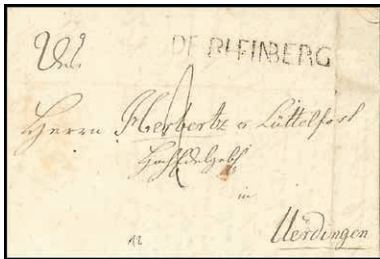 DE RHEINBERG
Herrn Herbertz & Lüttelfort
in
Uerdingen